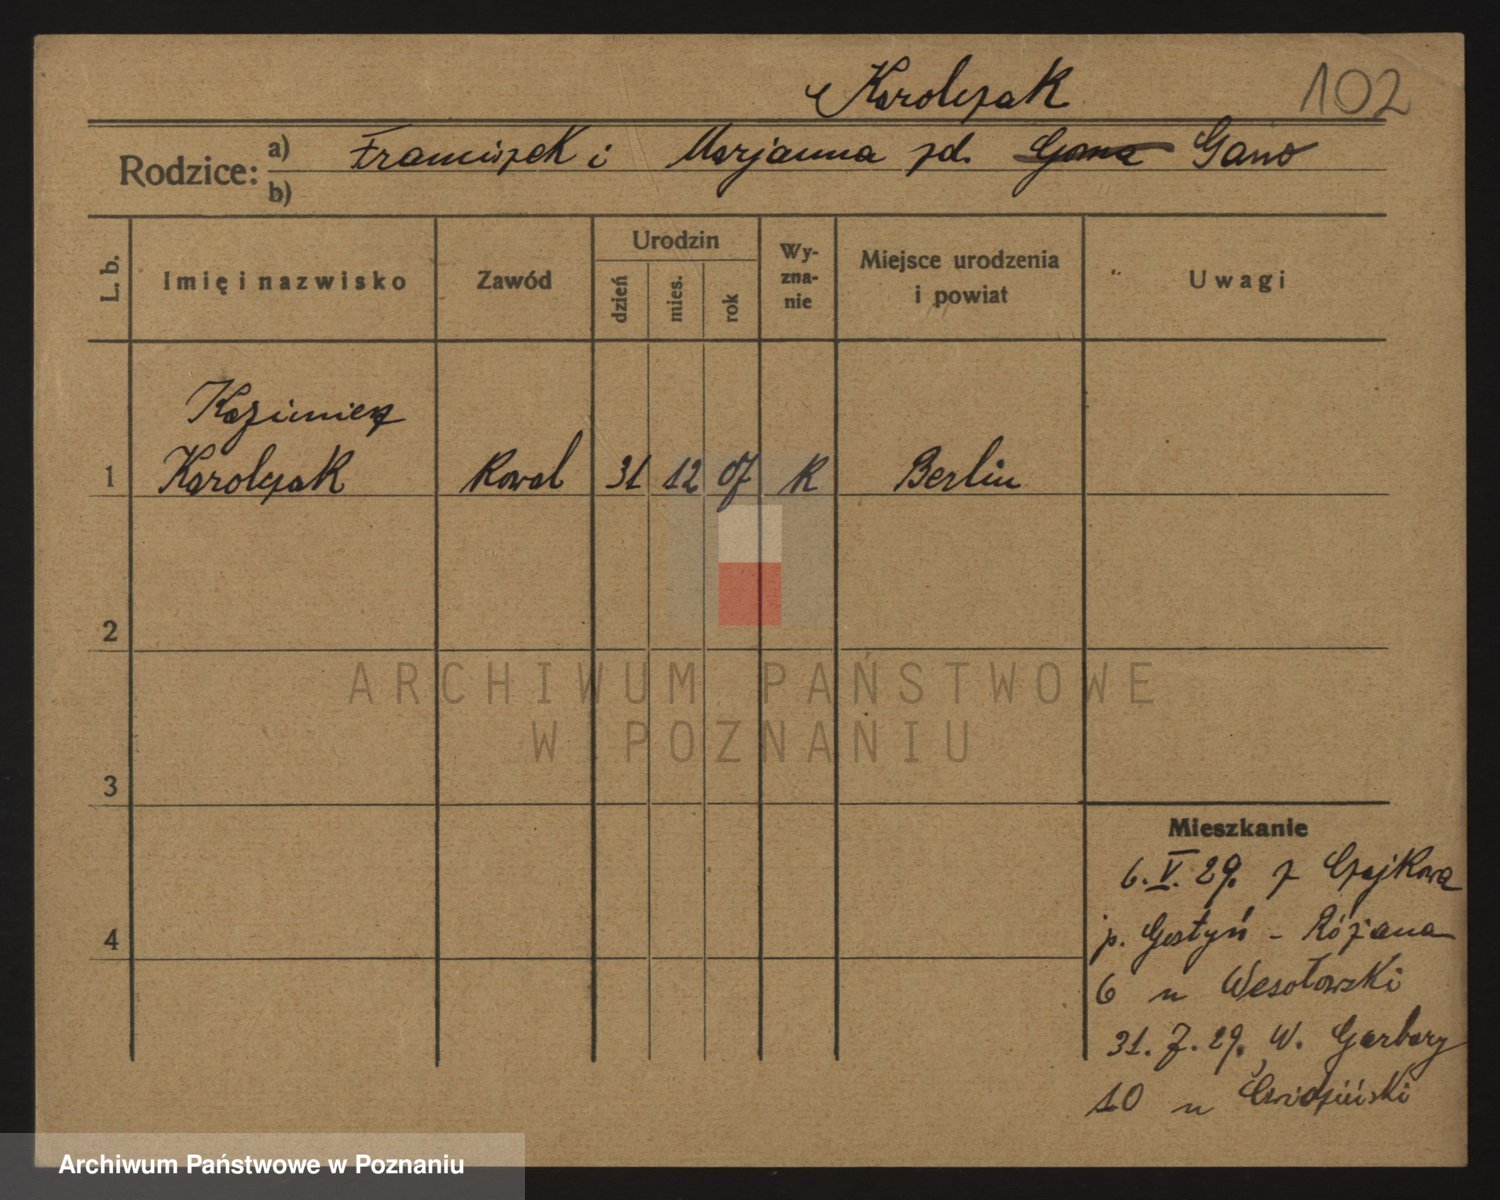 Karolczak
102
Rodzice: a) Franciszek i Marjanna zd. Gano
b)
L. b.
Imię i nazwisko
Zawód
Urodzin
dzień
mies.
rok
Wy-
zna-
nie
Miejsce urodzenia
i powiat
Uwagi
Kazimierz
1 Karolczak Kowal 31 12 07 K Berlin
2
3
4
Mieszkanie
6. V. 29. z Czajkowa
p. Gostyń - Różana
6 u Wesołowski
31. 7. 29. W. Garbary
10 u
ARCHIWUM PAŃSTWOWE
W POZNANIU
Archiwum Państwowe w Poznaniu